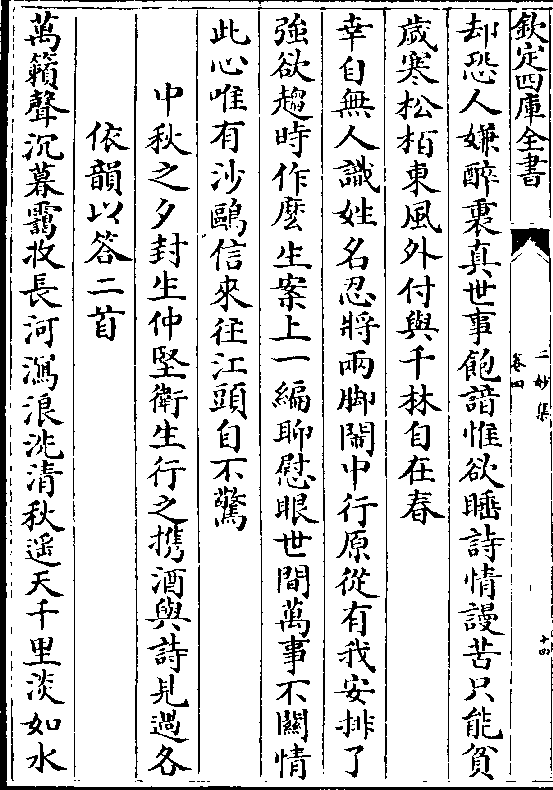 欽定四庫全書
二妙集
卷四
十四
却恐人嫌醉裏真世事飽諳惟欲睡詩情謾苦只能貧
歲寒松栢東風外付與千林自在春
幸自無人識姓名忍將兩脚閙中行原從有我安排了
強欲趨時作麽生案上一編聊慰眼世間萬事不關情
此心唯有沙鷗信來往江頭自不驚
中秋之夕封生仲堅衛生行之携酒與詩見過各
依韻以答二首
萬籟聲沉暮靄收長河瀉浪洗清秋遥天千里淡如水